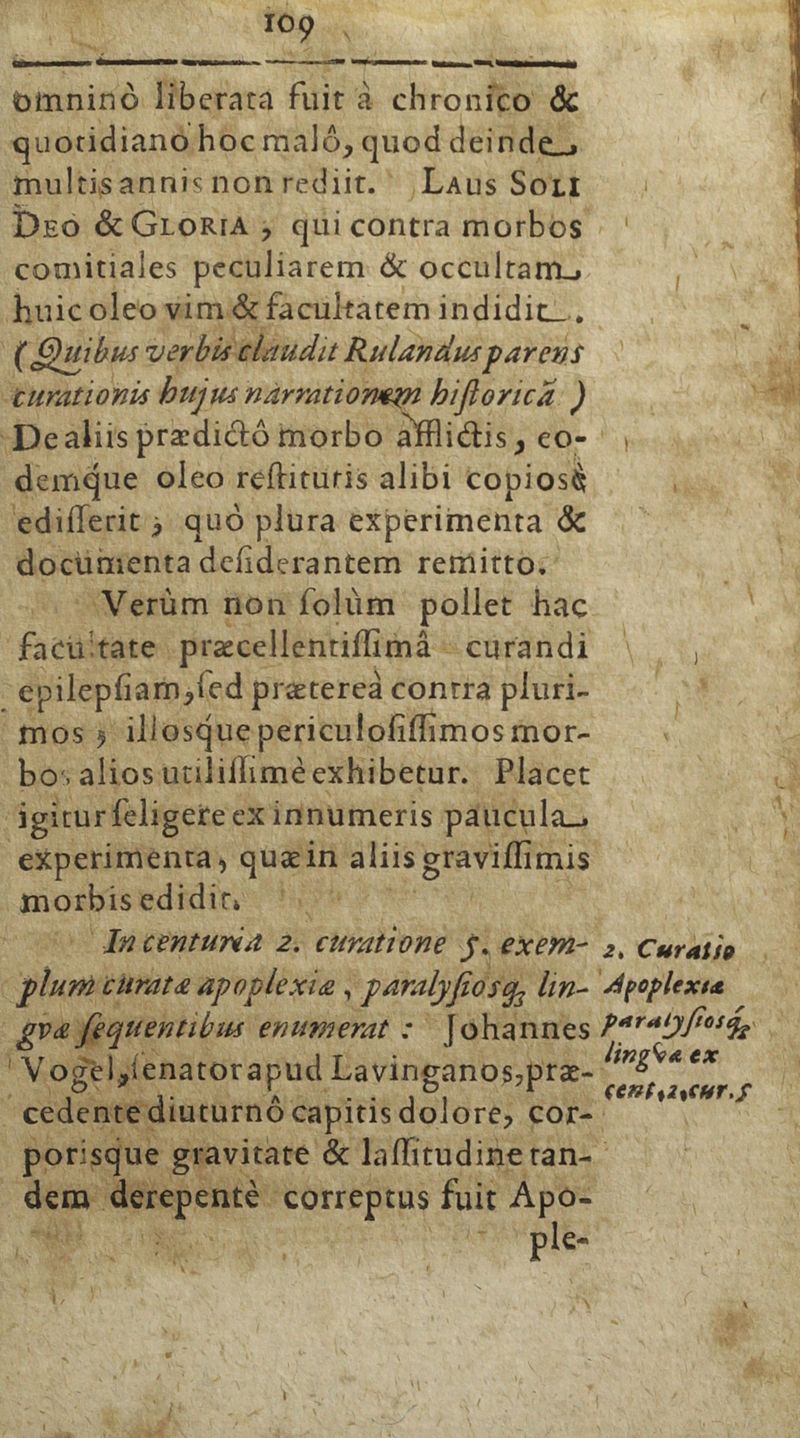 109
omninò liberata fuit à chronico &
quotidianô hoc malô, quod deinde
multis annis non rediit. LAUS SOLI
DEO & GLORIA, qui contra morbos
comitiales peculiarem & occultam
huic oleo vim & facultatem indidit.
(Quibus verbis claudit Rulandus parens
curationis hujus narrationem historicā )
De aliis prædictô morbo afflictis, eo-
demque oleo restitutis alibi copiosè
edisserit; quò plura experimenta &
documenta desiderantem remitto.
Verùm non solùm pollet hac
facultate præcellentissimâ curandi
epilepsiam, sed præterea contra pluri-
mos; illosque periculosissimos mor-
bos, alios utilissimè exhibetur. Placet
igitur seligere ex innumeris paucula
experimenta, quæ in aliis gravissimis
morbis edidit.
In centuria 2. curatione 5. exem-
plum curatæ apoplexiæ, paralysiosq; lin-
gvæ sequentibus enumerat : Johannes
Vogel, senator apud Lavinganos, præ-
cedente diuturnô capitis dolore, cor-
porisque gravitate & lassitudine tan-
dem derepentè correptus fuit Apo-
ple-
2. Curatio
Apoplexiæ
paralysiosq;
lingvæ ex
cent. 2. cur. 5